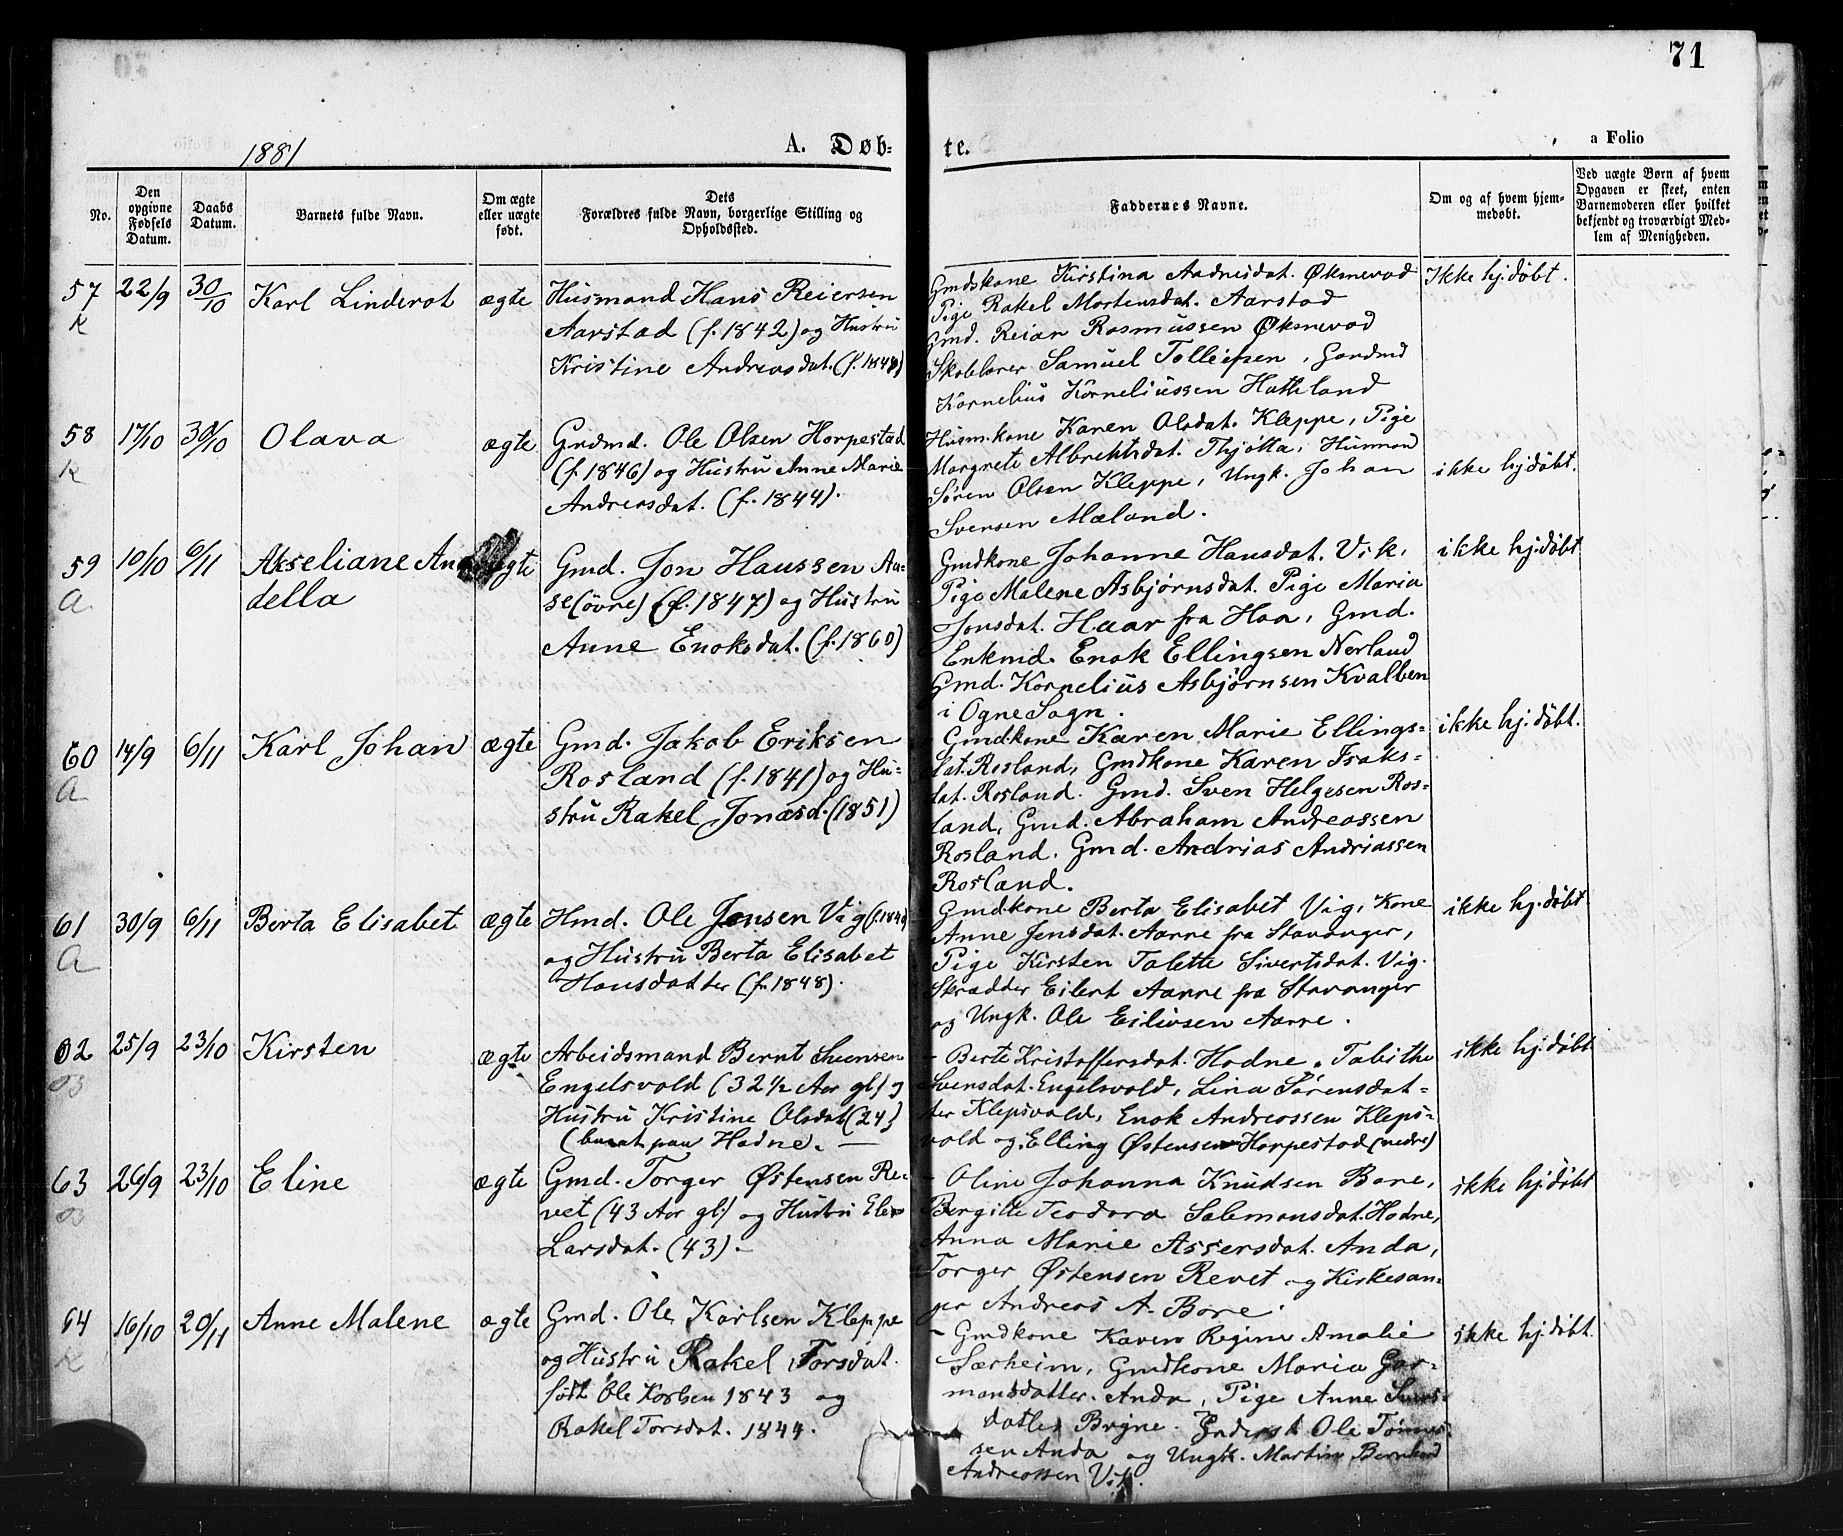 71
1881
A. Døb-
te.
a Folio
No.
Den opgivne Fødsels Datum.
Daabs Datum.
Barnets fulde Navn.
Om ægte eller uægte født.
Dets Forældres fulde Navn, borgerlige Stilling og Opholdssted.
Faddernes Navne.
Om og af hvem hjem-
medøbt.
Ved uægte Børn af hvem
Opgaven er skeet, enten
Barnemoderen eller hvilket
bekjendt og troværdigt Med-
lem af Menigheden.
57 22/9 30/10 Karl Linderot ægte
K
Husmand Hans Reiersen
Aarstad (f. 1842) og Hustru
Kristine Andreasdat. (f.
Gmdskone Kirstina Aadnesdat. Øksnevad
Pige Rakel Mortensdat. Aarstad
Gmd. Reiar Rasmussen Øksnevad
Samuel Tolleivsen, Gardmd
Kornelius Korneliussen Hatteland
Ikke hj.døbt.
58 17/10 30/10 Olava ægte
K
Grdmd. Ole Olsen Horpestad
(f. 1846) og Hustru Anne Marie
Andreasdat. (f. 1844).
Husm.kone Karen Olsdat. Kleppe, Pige
Margrete Albrektsdat. Thjøtta, Husmand
Søren Olsen Kleppe, Ungk. Johan
Svensen Mæland.
ikke hj.døbt.
59 10/10 6/11 Akseliane An
della
ægte
A
Gmd. Jon Haussen Aa-
se (övre) (f. 1847) og Hustru
Anne Enoksdat. (f. 1860)
Gmdkone Johanne Hansdat. Vik,
Pige Malene Asbjørnsdat. Pige Maria
Jonsdat. Haar fra Haa, Gmd.
Enkmd. Enok Ellingsen Nerland
Gmd. Kornelius Asbjørnsen Kvalben
i Ogne Sogn.
ikke hj.døbt
60 14/9 6/11 Karl Johan ægte
A
Gmd. Jakob Eriksen
Rosland (f. 1841) og Hu-
stru Rakel Jonasd. (1851)
Gmdkone Karen Marie Ellings-
dat. Rosland, Gmdkone Karen Isaks-
dat. Rosland. Gmd. Sven Helgesen Ros-
land, Gmd. Abraham Andreassen
Rosland, Gmd. Andrias Andriassen
Rosland.
ikke hj.døbt.
61 30/9 6/11 Berta Elisabet ægte
A
Hmd. Ole Jensen Vig
og Hustru Berta Elisabet
Hansdatter (f. 1848).
Gmdkone Berta Elisabet Vig, Kone
Anne Jensdat. Aarre fra Stavanger,
Pige Kirsten Talette Sivertsdat. Vig.
Skrædder Eilert Aarre fra Stavanger
og Ungk. Ole Eilivsen Aarre.
ikke hj.døbt
62 25/9 23/10 Kirsten ægte
B
Arbeidsmand Bernt Svensen
Engelsvold (32 1/2 Aar gl) og
Hustru Kristine Olsdat (24)
(busat paa Hodne. —
- Berte Kristoffersdat. Hodne, Tabithe
Svensdat. Engelsvold, Lina Sørensdat-
ter Klepsvold, Enok Andreassen Kleps-
vold og Elling Østensen Horpestad (nedre)
ikke hj.døbt
63 26/9 23/10 Eline ægte
B
Gmd. Torger Østensen Re-
vet (43 Aar gl) og Hustru
Larsdat. (43). -
- Oline Johanna Knudsen Bore,
Bergitte Teodora Salemonsdat. Hodne,
Anna Marie Assersdat. Anda,
Torger Østensen Revet og Kirkesan-
ger Andreas A. Bore.
ikke hj.døbt
64 16/10 20/11 Anne Malene ægte
K
Gmd. Ole Karlsen Kleppe
og Hustru Rakel Torsdat.
født Ole Karlsen 1843 og
Rakel Torsdat. 1844.
- Gmdkone Karen Regine Amalie
Særheim, Gmdkone Maria Gar-
mansdatter Anda, Pige Anne
datter Bryne. Ole
sen Anda og Ungk. Martin Bernhard
Andreassen Vik.
ikke hj.døbt.